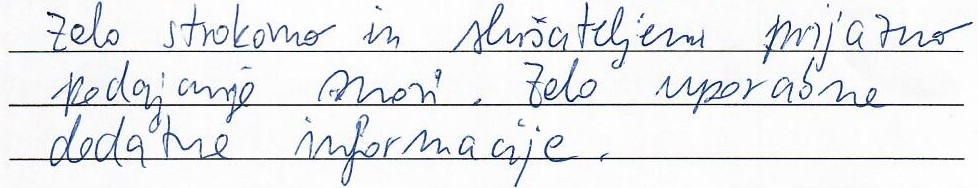 Zelo strokovno in slušateljem prijazno
podajanje snovi. Zelo uporabne
dodatne informacije.